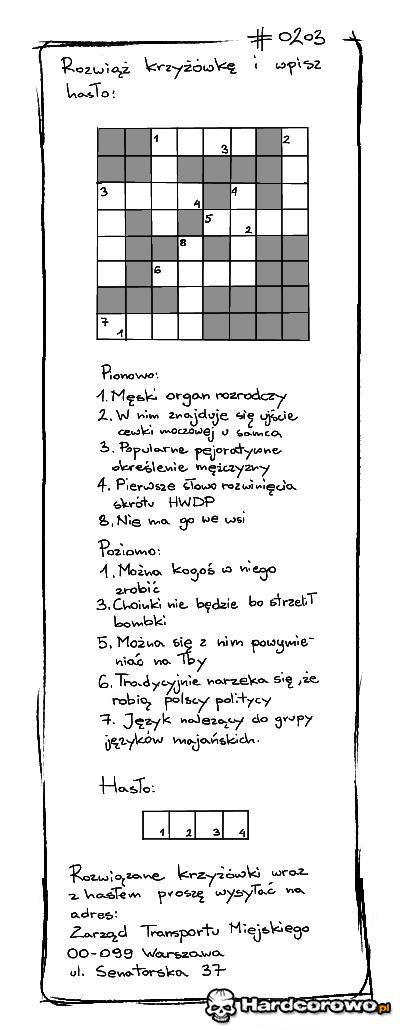 #0203
Rozwiąż krzyżówkę i wpisz
hasło:
1 2
3
3 4
4 5
2
8
6
7
1
Pionowo:
1. Męski organ rozrodczy
2. W nim znajduje się ujście
cewki moczowej u samca
3. Popularne pejoratywne
określenie mężczyzny
4. Pierwsze słowo rozwinięcia
skrótu HWDP
8. Nie ma go we wsi
Poziomo:
1. Można kogoś w niego
zrobić
3. Choinki nie będzie bo strzelił
bombki
5. Można się z nim powymie-
niać na łby
6. Tradycyjnie narzeka się, że
robią polscy politycy
7. Język należący do grupy
języków majańskich.
Hasło:
1 2 3 4
Rozwiązane krzyżówki wraz
z hasłem proszę wysyłać na
adres:
Zarząd Transportu Miejskiego
00-099 Warszawa
ul. Senatorska 37
Hardcorowo.pl